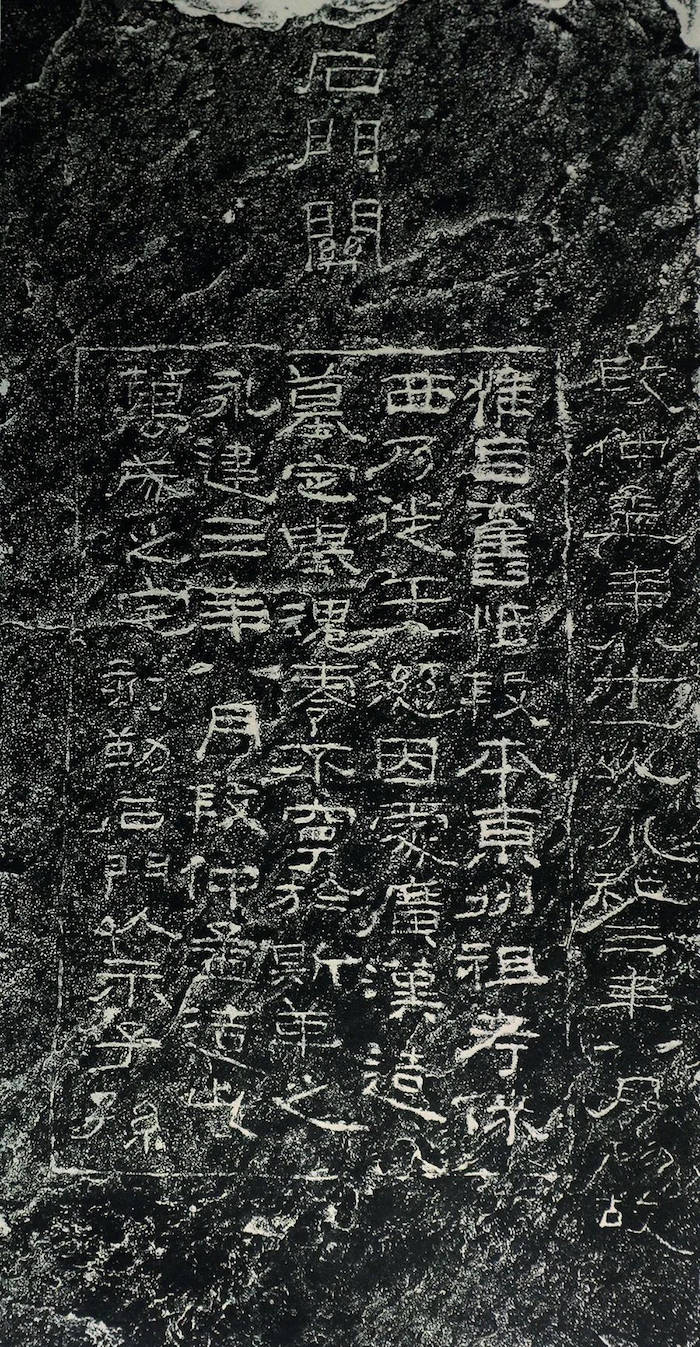 石門關
段仲孟年八十一以永和三年八月物故
惟自舊段本東州祖考徠
西乃徙于慈因家廣漢造
墓定冢魂零不寧於斯革之
永建三年八月段仲孟造此
萬歲之宅刻勒石門以示子孫